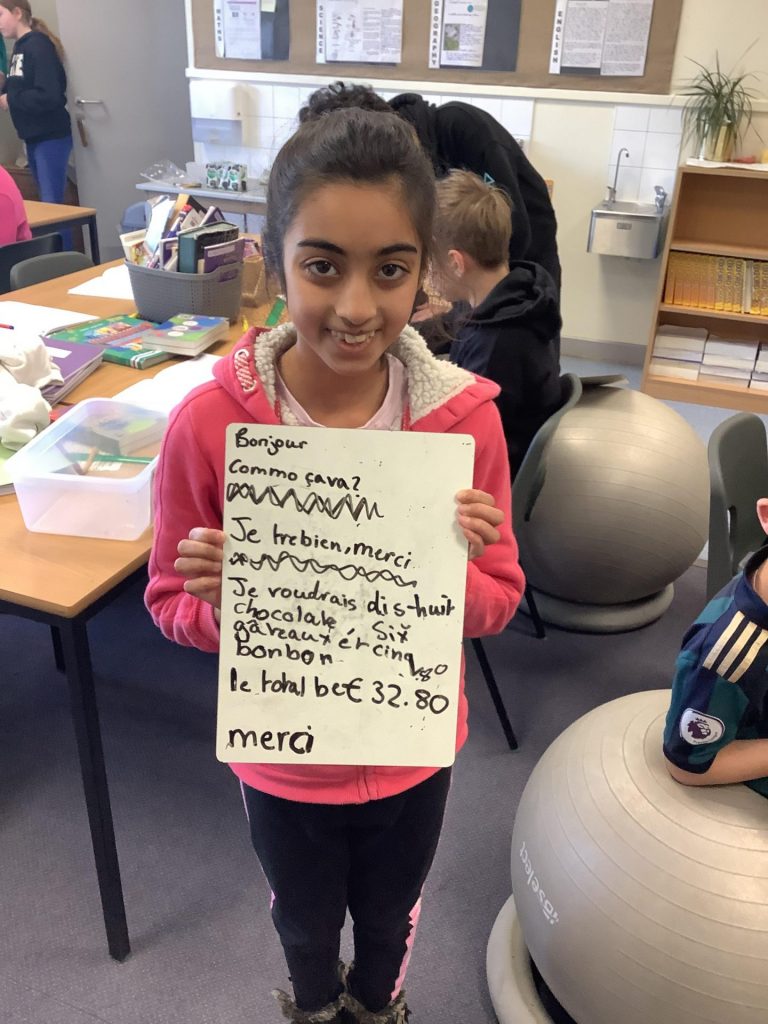 MATHS
SCIENCE
GEOGRAPHY
ENGLISH
Bonjour
Commo çava?
Je trebien, merci
Je voudrais dis-huit
chocolate six
gâteaux ét cinq
bonbon
le total be € 32.80
merci